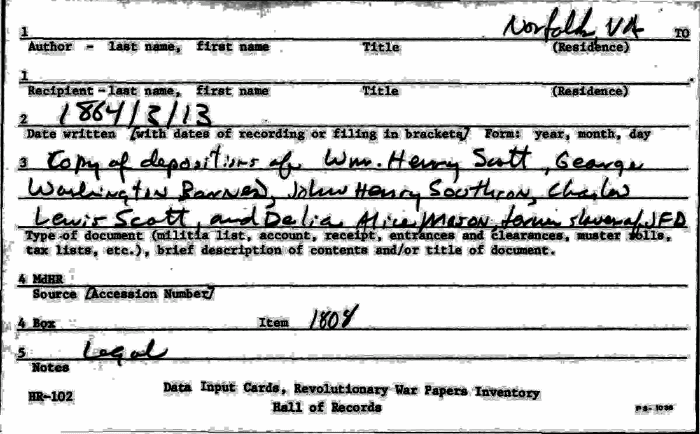 1 Norfolk, VA TO
Author - last name, first name Title (Residence)
1
Recipient - last name, first name Title (Residence)
2 1864/3/13
Date written [with dates of recording or filing in brackets] Form: year, month, day
3 Copy of depositions of Wm. Henry Scott, George
Washington Barnes, John Henry Southron, Charles
Lewis Scott, and Delia Alice Mason former slaves of JFD
Type of document (militia list, account, receipt, entrances and clearances, muster rolls,
tax lists, etc.), brief description of contents and/or title of document.
4 MdHR
Source [Accession Number]
4 Box Item 1808
5 Legal
Notes
HR-102 Data Input Cards, Revolutionary War Papers Inventory
Hall of Records